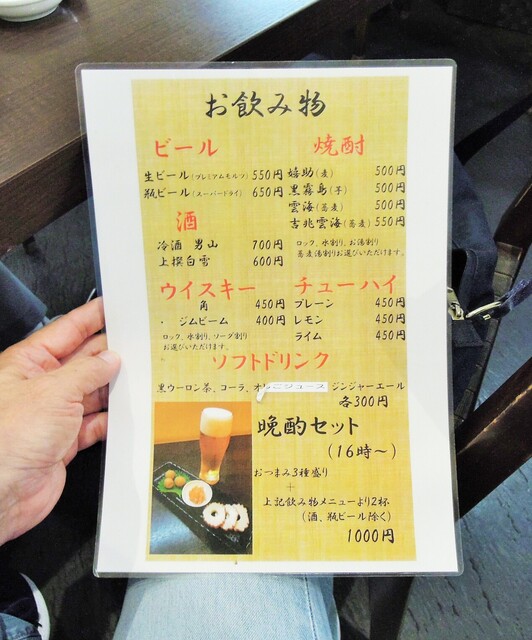 お飲み物
ビール
生ビール(プレミアムモルツ) 550円
瓶ビール(スーパードライ) 650円
焼酎
嬉助(麦) 500円
黒霧島(芋) 500円
雲海(蕎麦) 500円
吉兆雲海(蕎麦) 550円
ロック、水割り、お湯割り
蕎麦湯割りお選びいただけます。
酒
冷酒 男山 700円
上撰白雪 600円
ウイスキー
角 450円
・ ジムビーム 400円
ロック、水割り、ソーダ割り
お選びいただけます。
チューハイ
プレーン 450円
レモン 450円
ライム 450円
ソフトドリンク
黒ウーロン茶、コーラ、 ジュース ジンジャーエール
各300円
晩酌セット
(16時〜)
おつまみ3種盛り
+
上記飲み物メニューより2杯
(酒、瓶ビール除く)
1000円